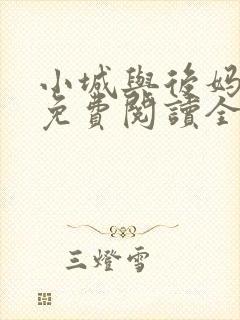 小城與後妈
免費閱讀全
三燈雪